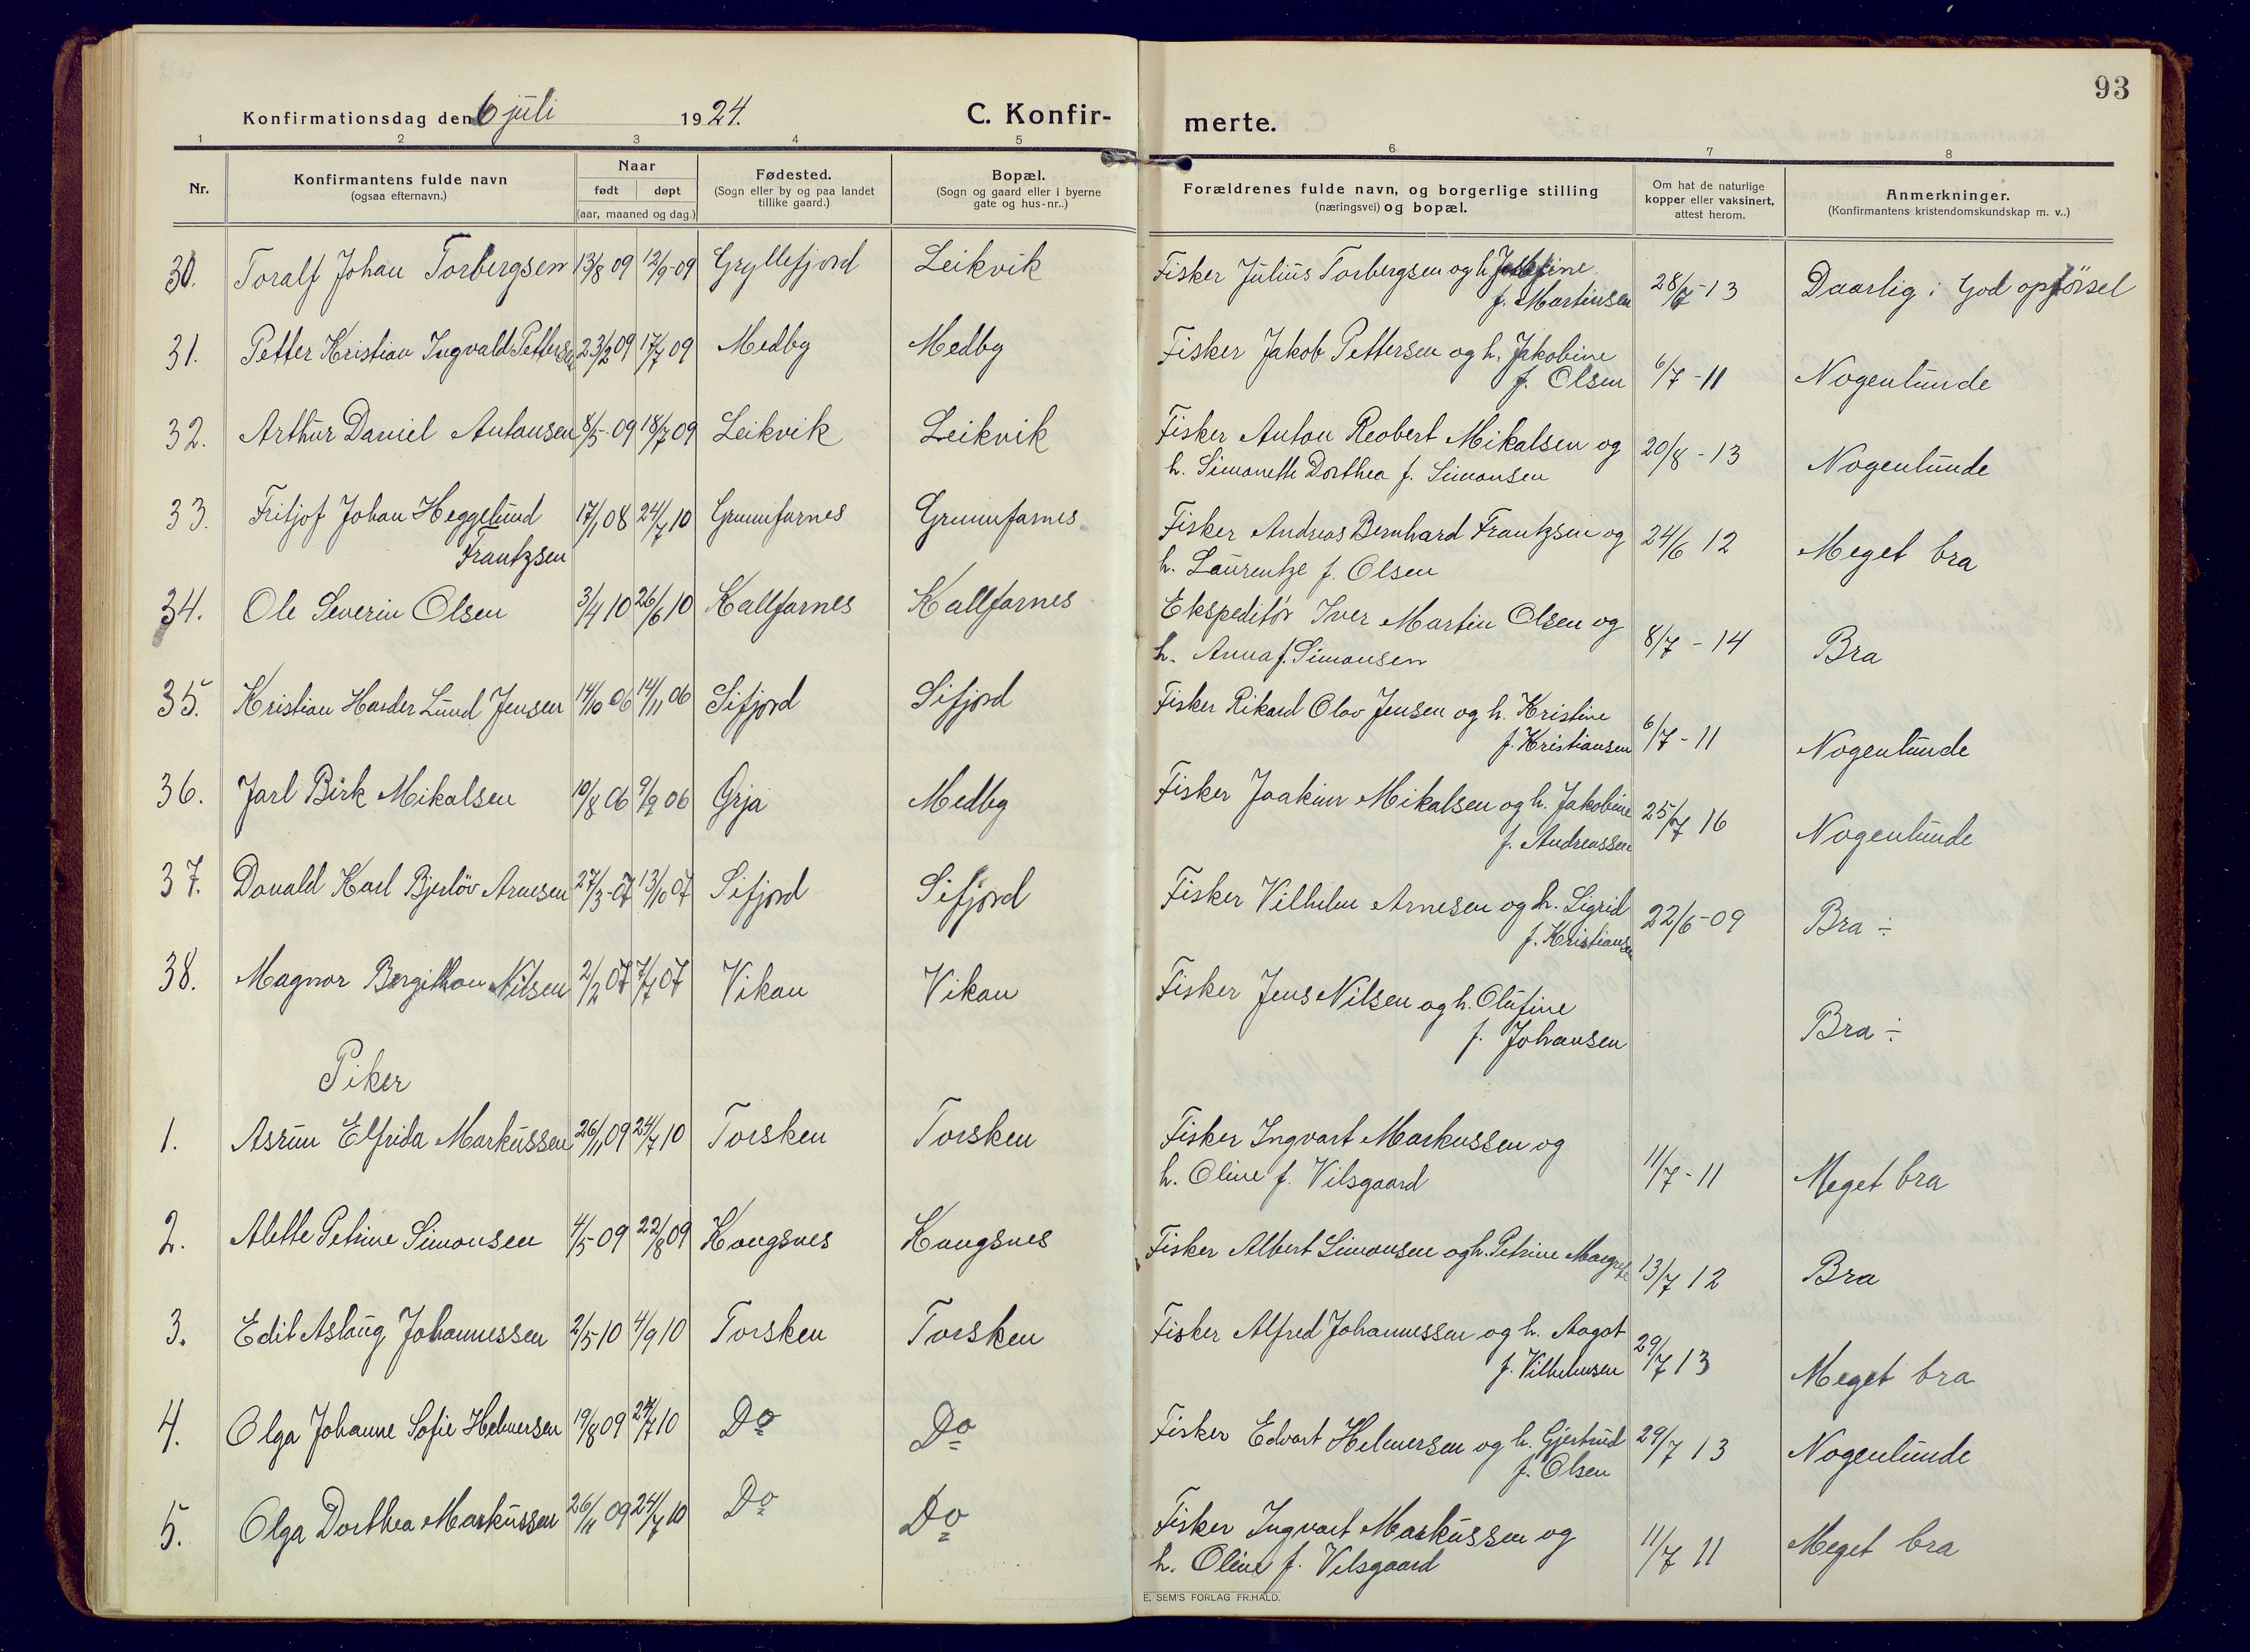 93
Konfirmationsdag den 6 juli 1924. C. Konfir-merte.
1 2 3 4 5 6 7 8
Nr.
Konfirmantens fulde navn
(ogsaa efternavn.)
Naar
født døpt
(aar, maaned og dag.)
Fødested.
(Sogn eller by og paa landet
tillike gaard.)
Bopæl.
(Sogn og gaard eller i byerne
gate og hus-nr..)
Forældrenes fulde navn, og borgerlige stilling
(næringsvei) og bopæl.
Om hat de naturlige
kopper eller vaksinert,
attest herom.
Anmerkninger.
(Konfirmantens kristendomskundskap m. v..)
30. Toralf Johan Torbergsen 13/8 09 12/9-09 Gryllefjord Leikvik Fisker Julius Torbergsen og h. Josefine 28/7-13 Daarlig : God opförsel
f. Martinsen
31. Petter Kristian Ingvald Pettersen 23/2 09 17/7 09 Medby Medby Fisker Jakob Pettersen og h. Jakobine
f. Olsen 6/7-11 Nogenlunde
32. Arthur Daniel Antonsen 8/5-09 18/7 09 Leikvik Leikvik Fisker Anton Reobert Mikalsen og 20/8-13 Nogenlunde
h. Simonette Dorthea f. Simonsen
33. Fritjof Johan Heggelund 17/1 08 24/7 10 Grunnfarnes Grunnfarnes Fisker Andreas Bernhard Frantzsen og 24/6 12 Meget bra
Frantzsen h. Laurentze f. Olsen
34. Ole Severin Olsen 3/4 10 26/6 10 Kallfarnes Kallfarnes Ekspeditör Iver Martin Olsen og 8/7-14 Bra
h. Anna f. Simonsen
35. Kristian Harder Lund Jensen 14/10 06 14/11 06 Sifjord Sifjord Fisker Rikard Olav Jensen og h. Kristine 6/7-11 Nogenlunde
f. Kristiansen
36. Jarl Birk Mikalsen 10/8 06 9/9 06 Grja Medby Fisker Joakim Mikalsen og h. Jakobine 25/7 16 Nogenlunde
f. Andreassen
37. Donald Karl Bjerlöv Arnesen 27/3-07 13/10 07 Sifjord Sifjord Fisker Vilhelm Arnesen og h. Sigrid 22/6-09 Bra ÷
f. Kristiansen
38. Magnor Bergithon Nilsen 2/2 07 7/7 07 Vikan Vikan Fisker Jens Nilsen og h. Olufine Bra ÷
f. Johansen
Piker
1. Asrun Elfrida Markussen 26/11 09 24/7 10 Torsken Torsken Fisker Ingvart Markussen og 11/7-11 Meget bra
h. Oline f. Vilsgaard
2. Alette Petrine Simonsen 4/5 09 22/8 09 Kongsnes Kongsnes Fisker Albert Simonsen og h. Petrine Margrete 13/7 12 Bra
3. Edit Aslaug Johannessen 2/5 10 4/9 10 Torsken Torsken Fisker Alfred Johannessen og h. Aagot 29/7 13 Meget bra
f. Vilhelmsen
4. Olga Johanne Sofie Helmersen 19/8 09 24/7 10 Do Do Fisker Edvart Helmersen og h. Gjertrud 29/7 13 Nogenlunde
f. Olsen
5. Olga Dorthea Markussen 26/11 09 24/7 10 Do Do Fisker Ingvart Markussen og 11/7 11 Meget bra
h. Oline f. Vilsgaard
E. SEM'S FORLAG FR.HALD.